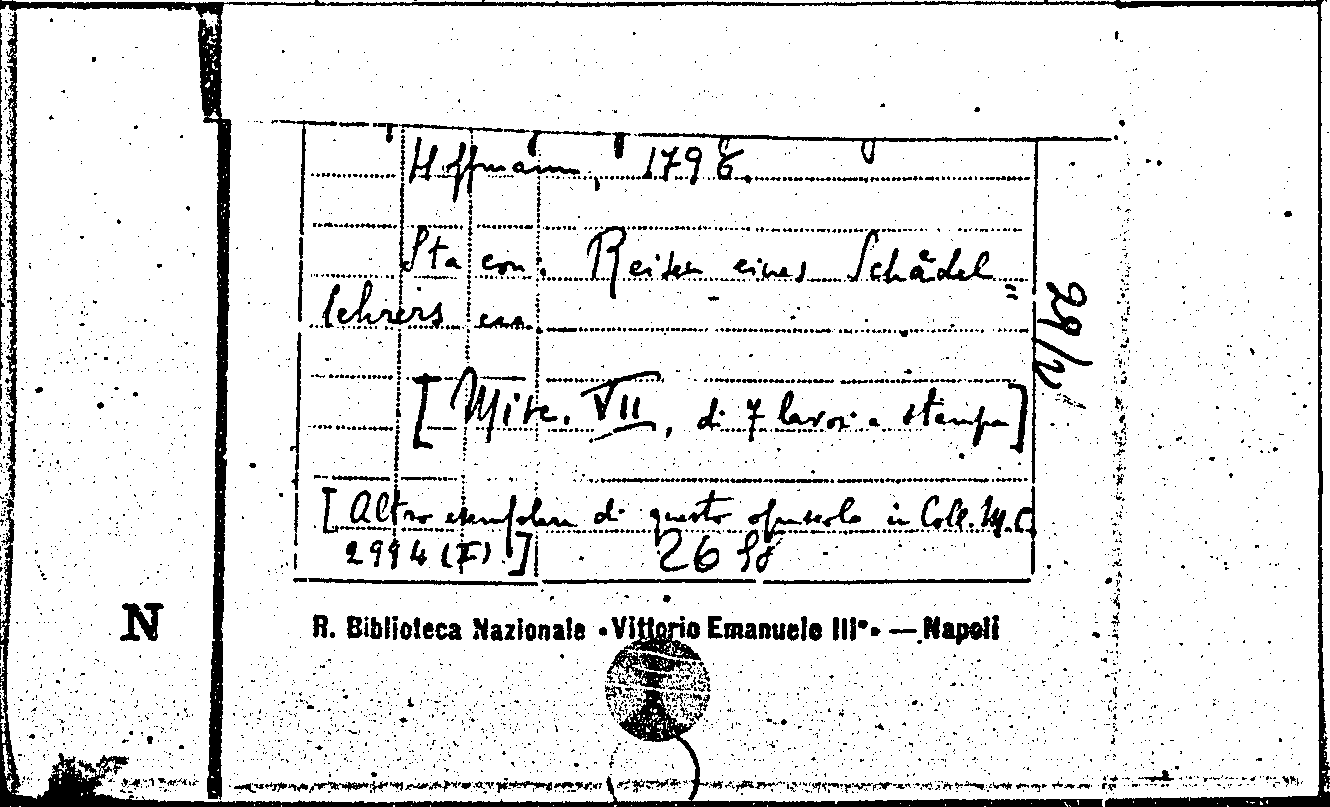 Hoffmann, 1798.
Sta con: Reisen eines Schädel
lehrers ecc.
[Misc. VII, di 7 lavori a stampa]
[Altro esemplare di questo opuscolo in Coll. M.C.
2994 (I).] 2698
29/V
N
R. Biblioteca Nazionale «Vittorio Emanuele III°» — Napoli